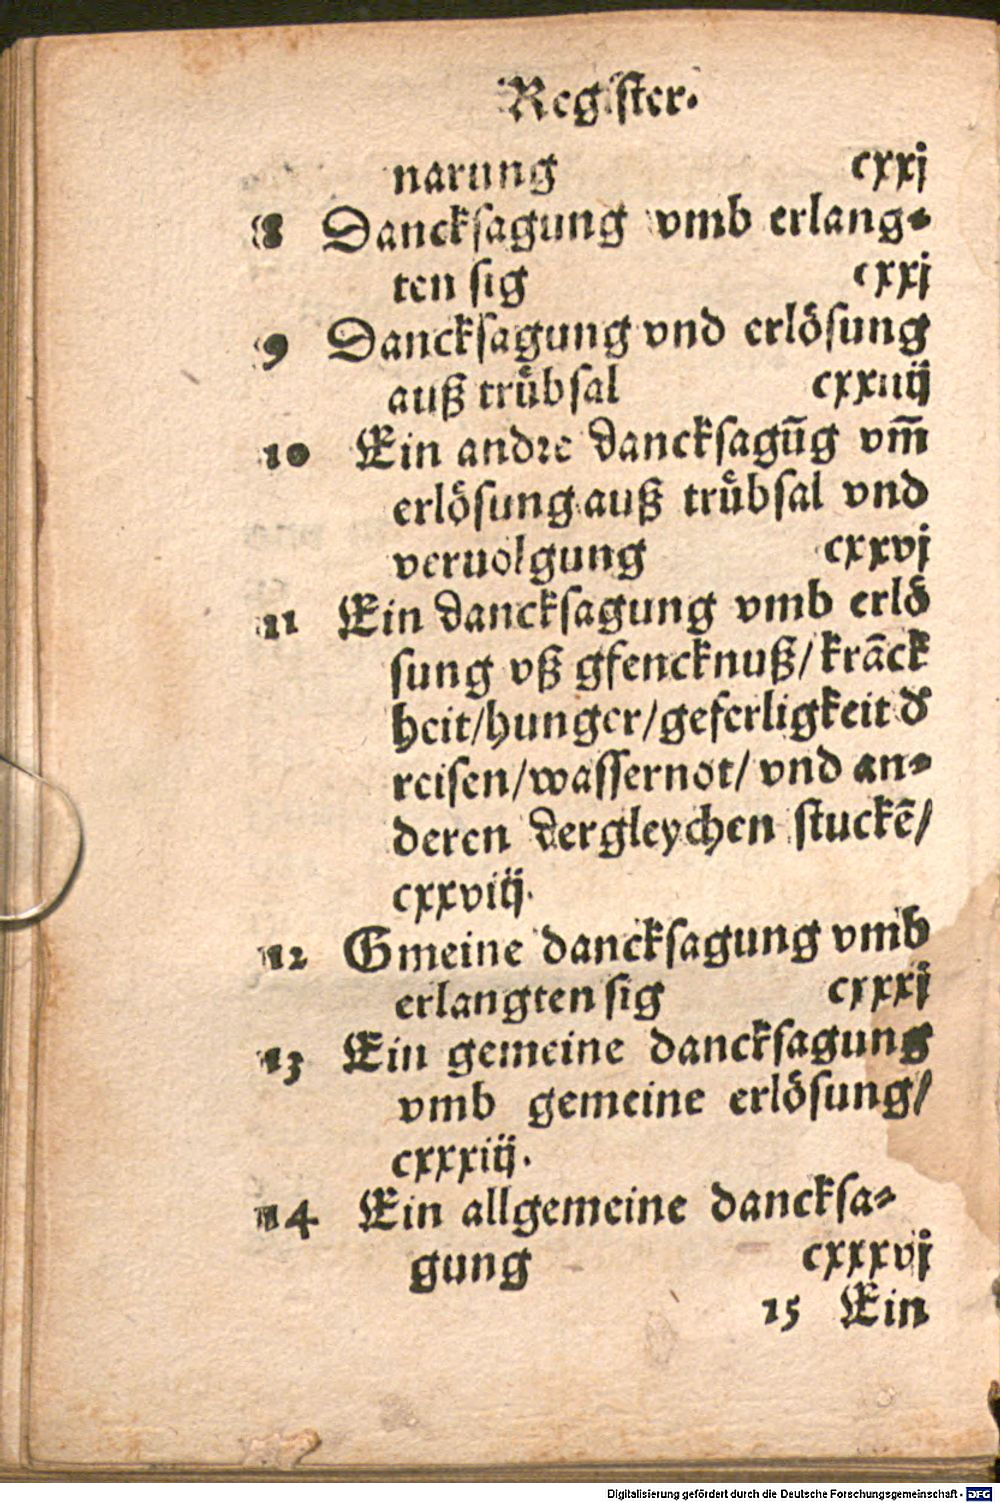 Register.
narung cxxj
8 Dancksagung vmb erlang⸗
ten sig cxxj
9 Dancksagung vnd erlösung
auß trübsal cxxiiij
10 Ein andre dancksagūg vm̄
erlösung auß trübsal vnd
veruolgung cxxvj
11 Ein dancksagung vmb erlö
sung vß gfencknuß/krāck
heit/hunger/geferligkeit d̕
reisen/wassernot/vnd an⸗
deren dergleychen stuckē/
cxxviij.
12 Gmeine dancksagung vmb
erlangten sig cxxxj
13 Ein gemeine dancksagung
vmb gemeine erlösung/
cxxxiij.
14 Ein allgemeine dancksa⸗
gung cxxxvj
15 Ein
Digitalisierung gefördert durch die Deutsche Forschungsgemeinschaft - DFG